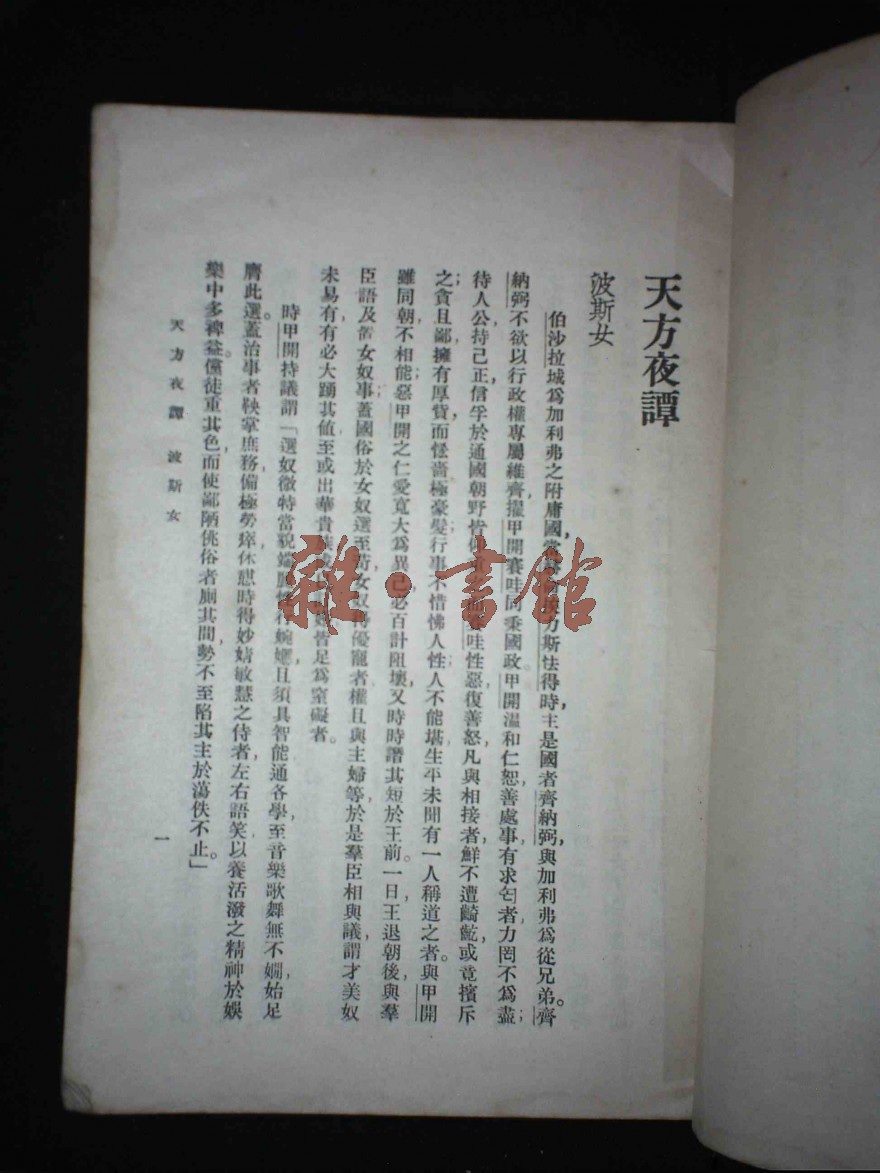 天方夜譚
波斯女
伯沙拉城爲加利弗之附庸國，當 斯怯得時，主是國者齊納弼，與加利弗爲從兄弟。齊
納弼不欲以行政權專屬維齊，擢甲開賽哇同秉國政。甲開溫和仁恕，善處事，有求匄者，力罔不爲盡；
待人公，持己正，信孚於通國，朝野皆 哇性惡復善怒，凡與相接者，鮮不遭齮齕，或竟擯斥
之；貪且鄙，擁有厚貲，而慳嗇極豪髮，行事不惜怫人性，人不能堪；生平未聞有一人稱道之者。與甲開
雖同朝，不相能；惡甲開之仁愛寬大爲異己，必百計阻壞，又時時譖其短於王前。一日，王退朝後，與羣
臣語及 女奴事；蓋國俗於女奴選至苛，女奴得優寵者，權且與主婦等。於是羣臣相與議，謂才美奴
未易有，有必大踊其値，至或出華貴族 皆足爲窒礙者。
時甲開持議謂「選奴徵特當貌 婉嫕，且須具智能，通各學，至音樂歌舞無不嫺，始足
膺此選。蓋治事者鞅掌庶務，備極勞瘁，休憇時得妙婧敏慧之侍者，左右語笑，以養活潑之精神，於娛
樂中多裨益。儻徒重其色，而使鄙陋佻俗者廁其間，勢不至陷其主於蕩佚不止。」
天方夜譚 波斯女
一
雜·書館